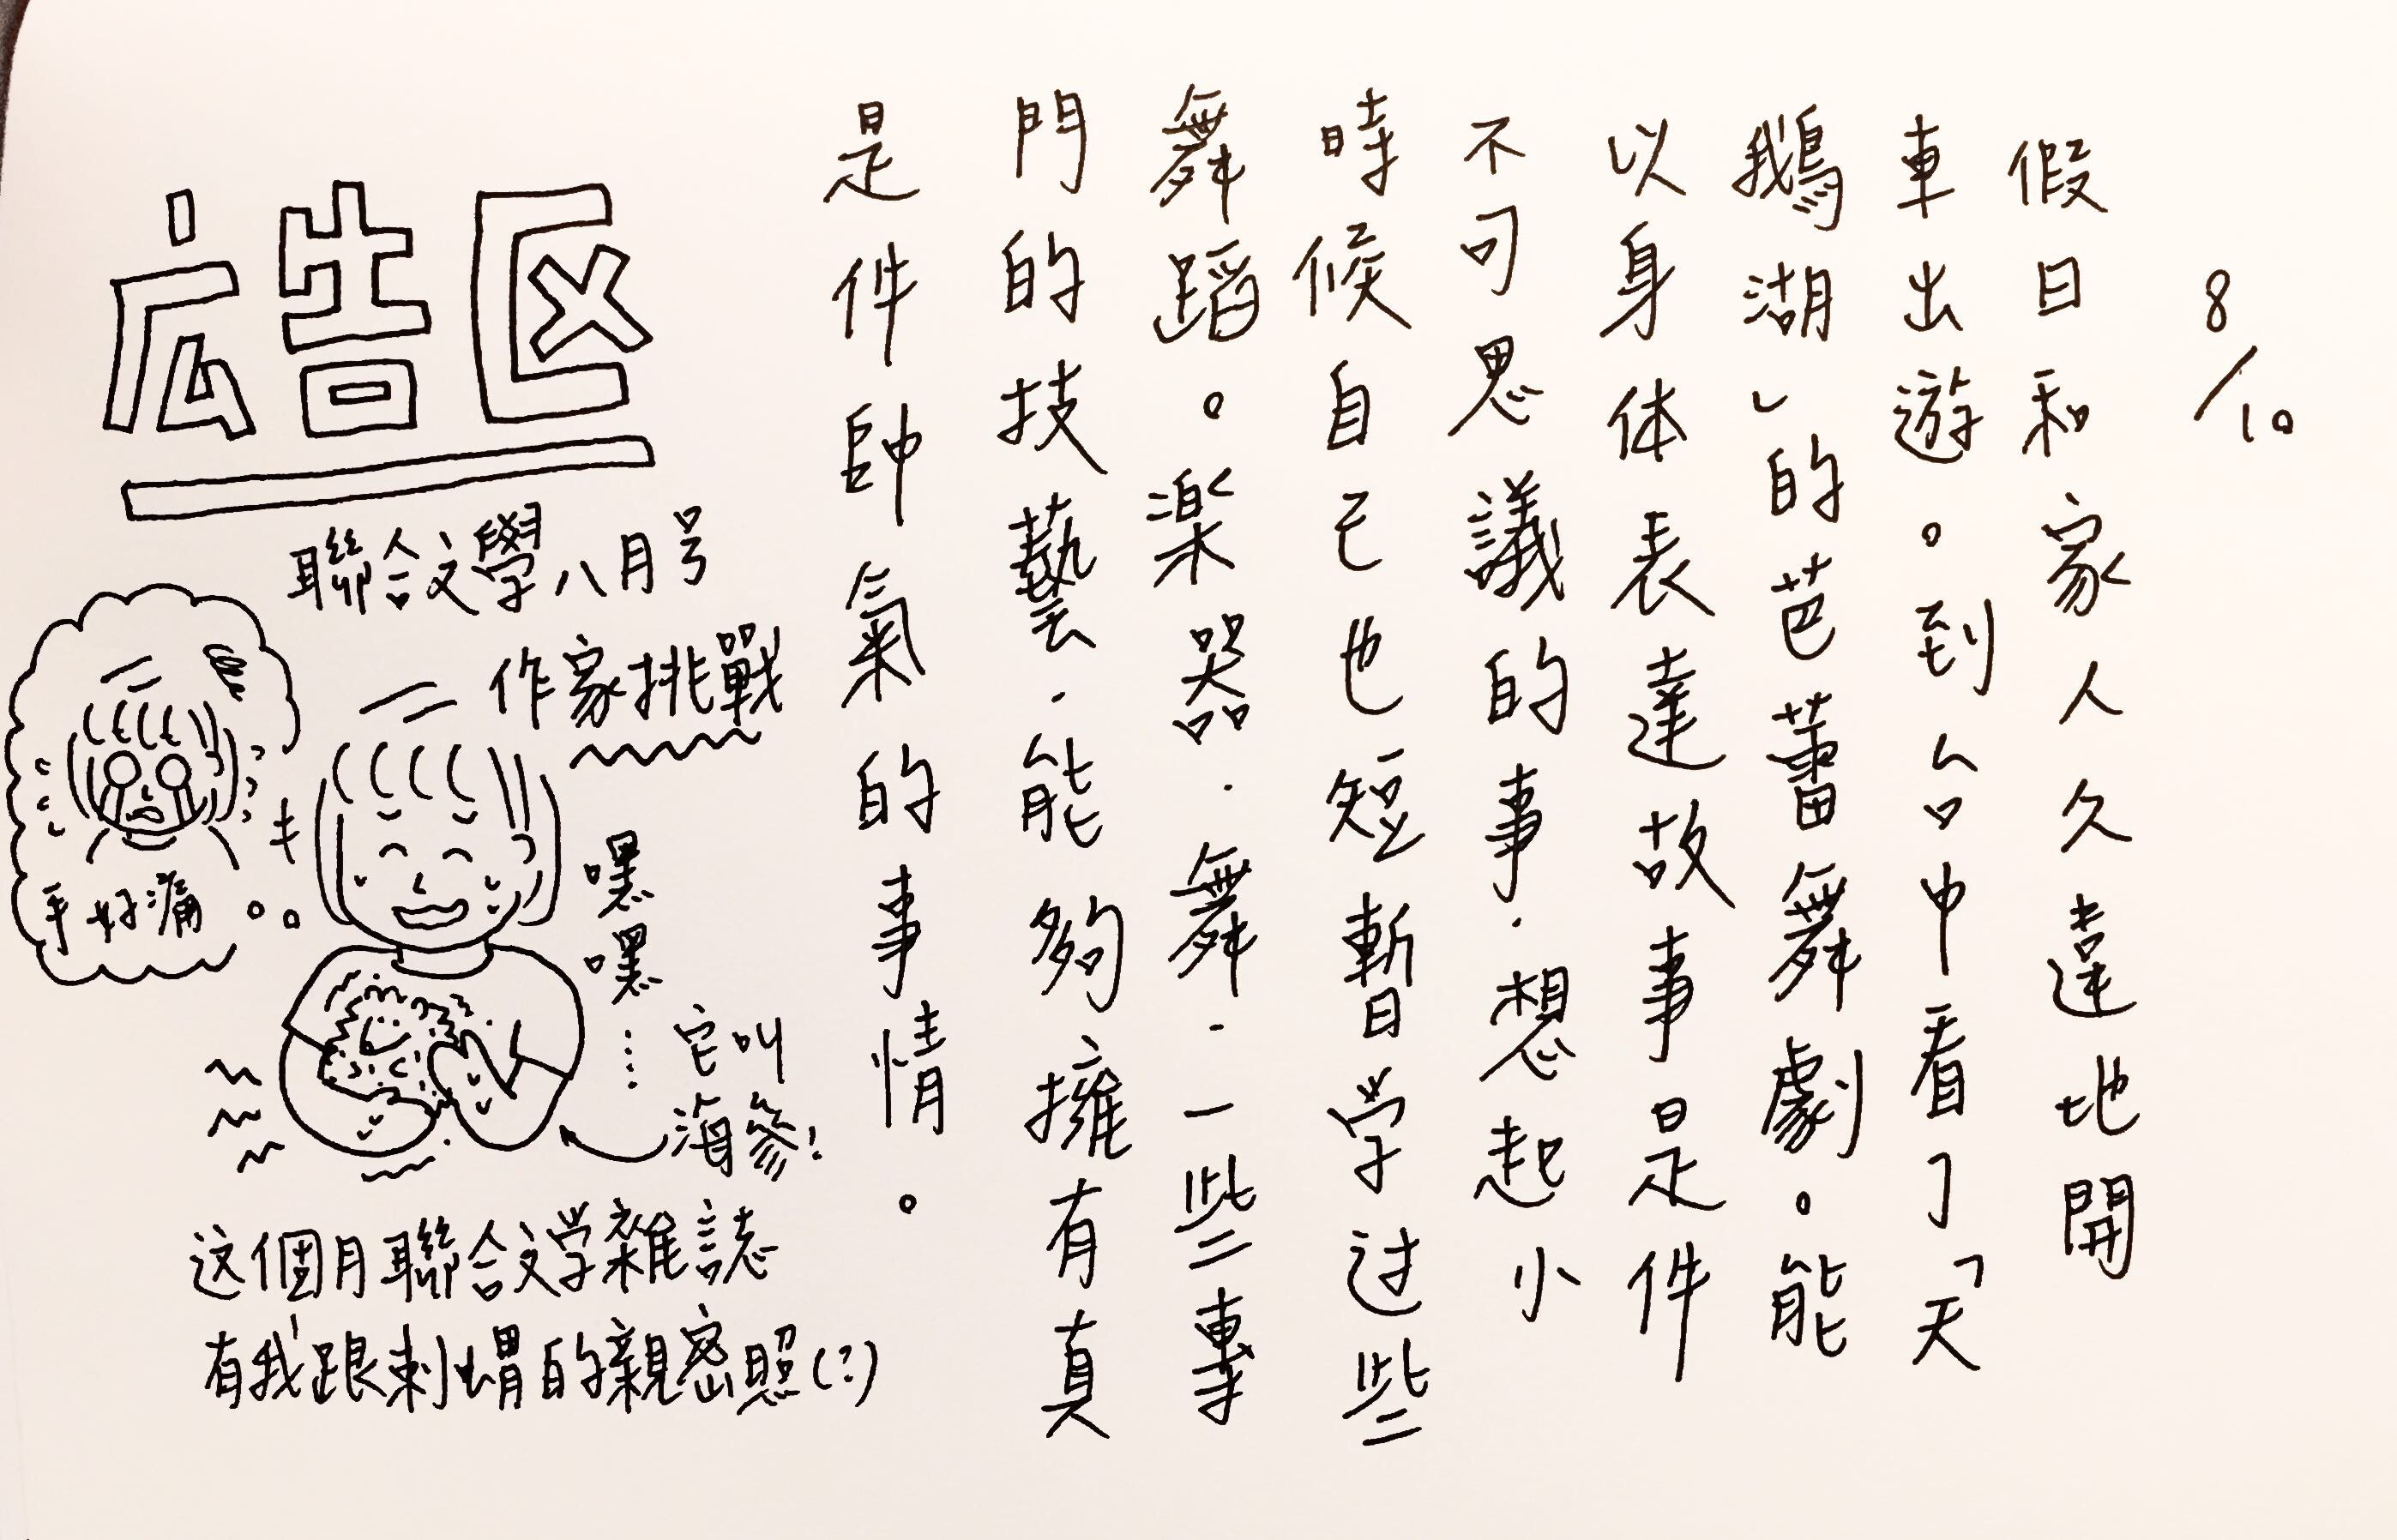 8/10
假日和家人久違地開
車出遊。到台中看了「天
鵝湖」的芭蕾舞劇。能
以身体表達故事是件
不可思議的事.想起小
時候自己也短暫学过些
舞蹈。楽器.舞.一些專
門的技藝.能夠擁有真
是件帥氣的事情。
広告区
聯合文學八月号
作家挑戰
嘿嘿……
它叫
海參!
手好痛
这個月聯合文学雜誌
有我跟刺蝟的親密照(?)